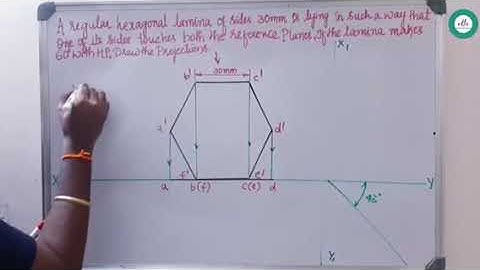 A regular hexagonal lamina of sides 30mm is lying in such a way that
one of its sides touches both the reference Planes. If the lamina makes
60° with HP. Draw the Projections.
X₁
30mm
b' c'
a' d'
f' e'
X Y
a b(f) c(e) d
45°
Y₁